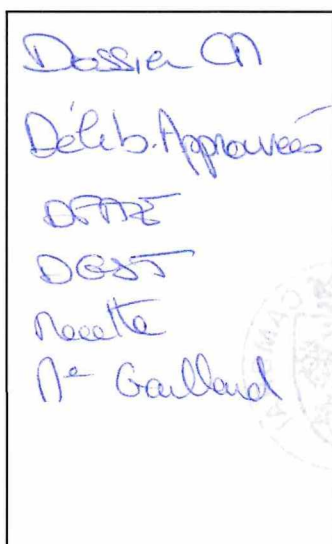 Dossier CM
Délib. Approuvées
DGST
Recette
Me Gaillard